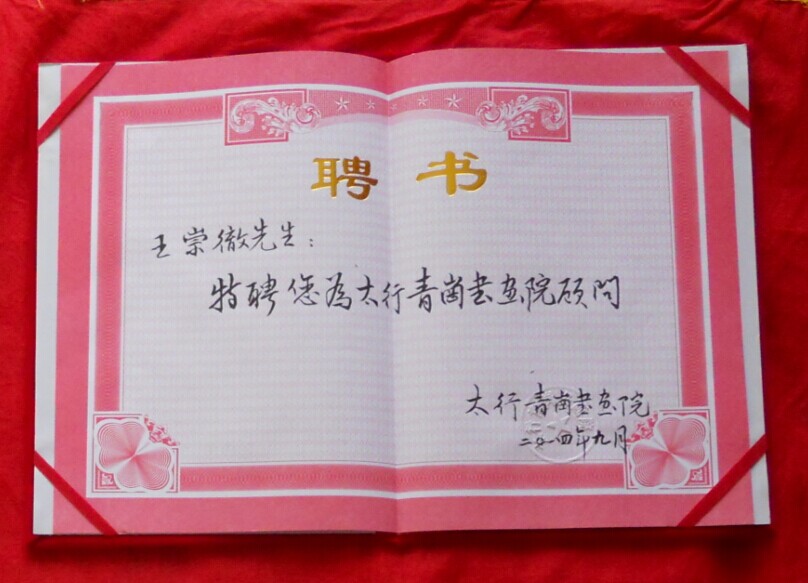 聘书
王崇徹先生：
特聘您為太行青崗書画院顾问
太行青崗書画院
二〇一四年九月